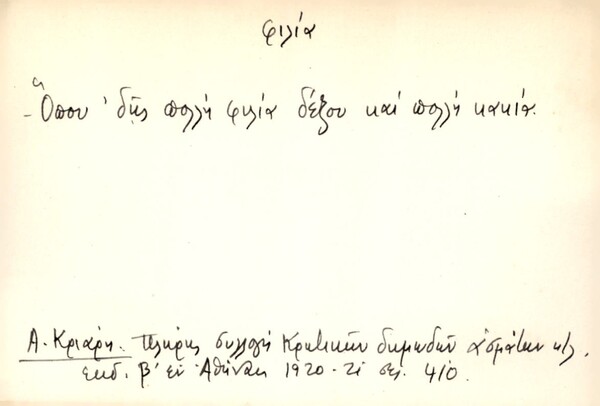 φιλία
- Ὅπου 'δῆς πολλή φιλία δέξου καί πολλή κακία.
Α. Κριάρη. Πλήρης συλλογή Κρητικῶν δημωδῶν ἀσμάτων κτλ.
ἐκδ. β' ἐν Ἀθήναις 1920 - 21 σελ. 410.